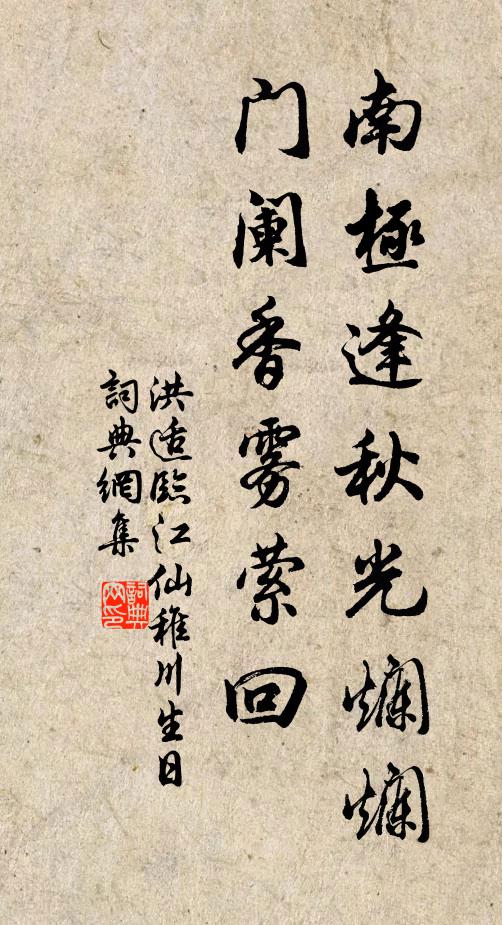 南極逢秋光爛爛
门阑香雾萦回
洪适臨江仙稚川生日
詞典網集
詞典网印